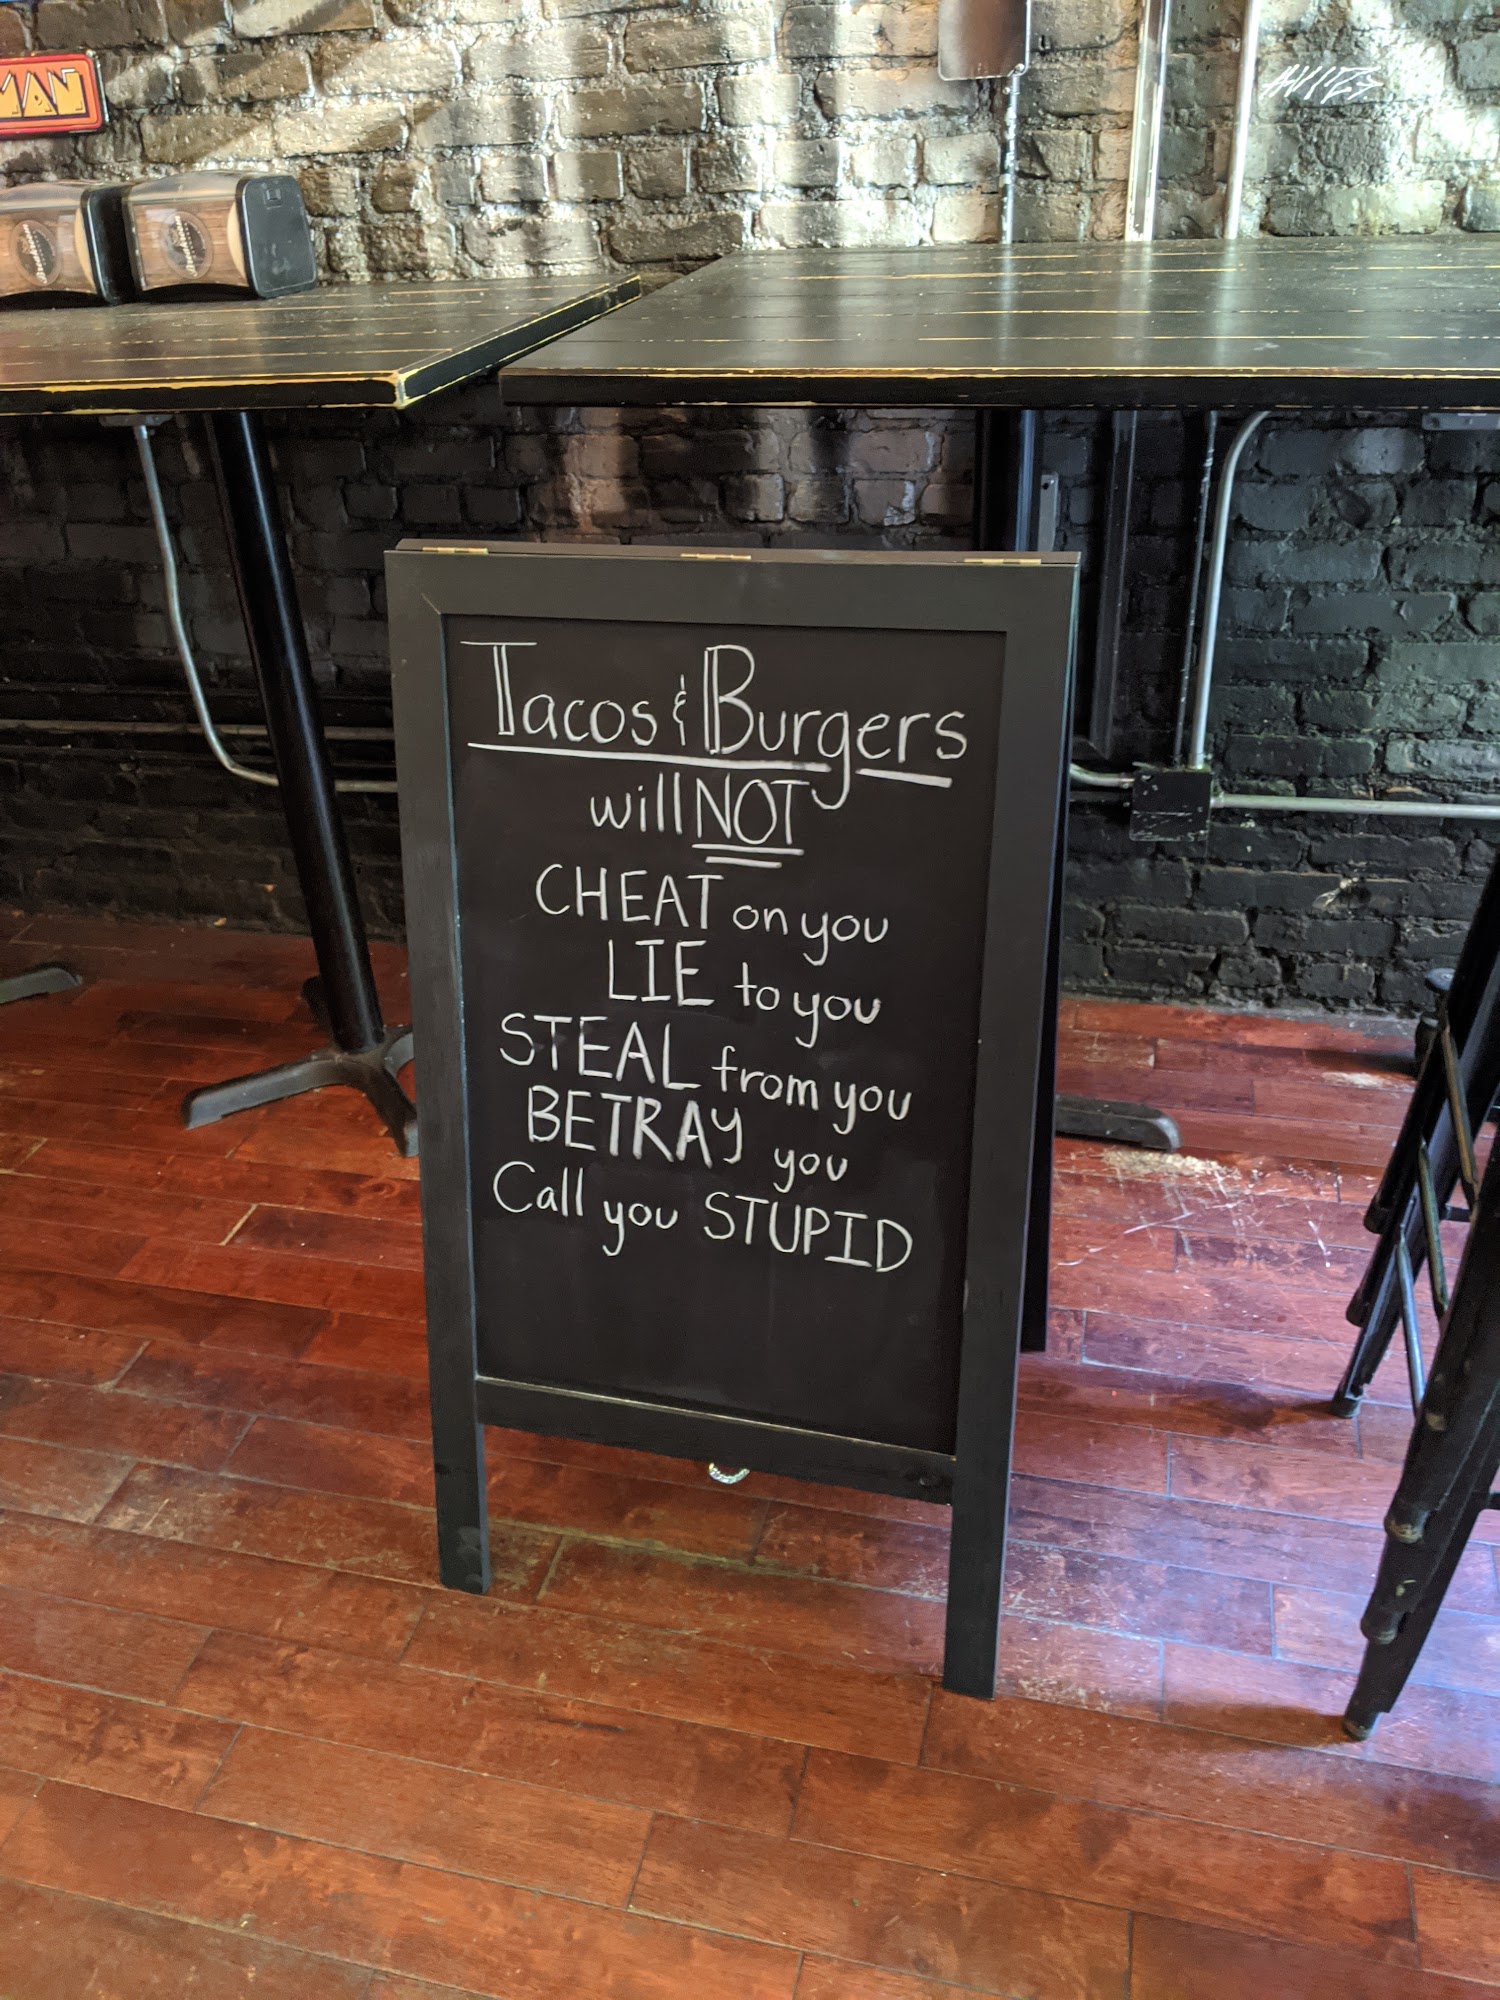 MAN
Tacos & Burgers
will NOT
CHEAT on you
LIE to you
STEAL from you
BETRAY you
Call you STUPID